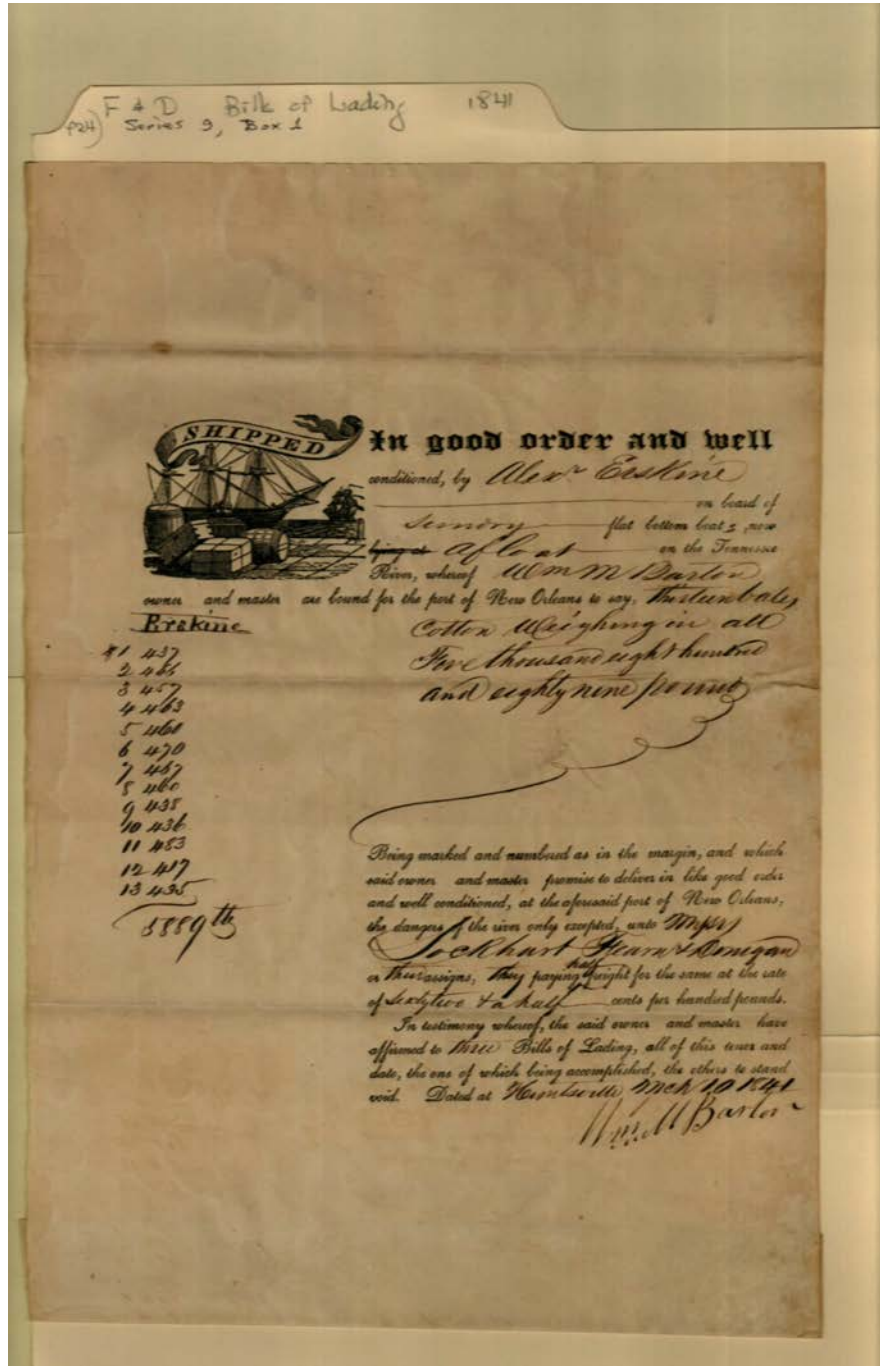 F & D Bills of Lading 1841
P24) Series 9, Box 1
SHIPPED
In good order and well
conditioned, by Alexr Erskine
on board of
Sundry flat bottom boats, now
lying at afloat on the Tennessee
River, whereof Wm M Barton
owner and master are bound for the port of New Orleans to say, thirteen bales
Cotton Weighing in all
Five thousand eight hundred
and eighty nine pounds
Erskine
#1 437
2 466
3 457
4 463
5 460
6 470
7 467
8 460
9 438
10 436
11 483
12 417
13 435
5889 lb
Being marked and numbered as in the margin, and which
said owner and master promise to deliver in like good order
and well conditioned, at the aforesaid port of New Orleans,
the dangers of the river only excepted, unto Messrs
Lockhart Fearn & Donegan
or their assigns, they paying half freight for the same at the rate
of Sixty two & a half cents per hundred pounds.
In testimony whereof, the said owner and master have
affirmed to three Bills of Lading, all of this tenor and
date, the one of which being accomplished, the others to stand
void. Dated at Huntsville Mch 10 1841
Wm M Barton